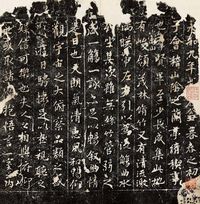 永和九年歲在癸丑暮春之初
會稽山陰之蘭亭脩稧事
賢畢至少長咸集此地
峻領茂林脩竹又有清流激
帶左右引以為流觴曲水
坐其次雖無絲竹管弦之
盛一觴一詠亦足以暢敘幽情
日也天朗氣清惠風和暢仰
觀宇宙之大俯察品類之盛
遊目騁懷足以極視聽之
娛信可樂也夫人之相與俯仰
世或取諸懷抱悟言一室之內